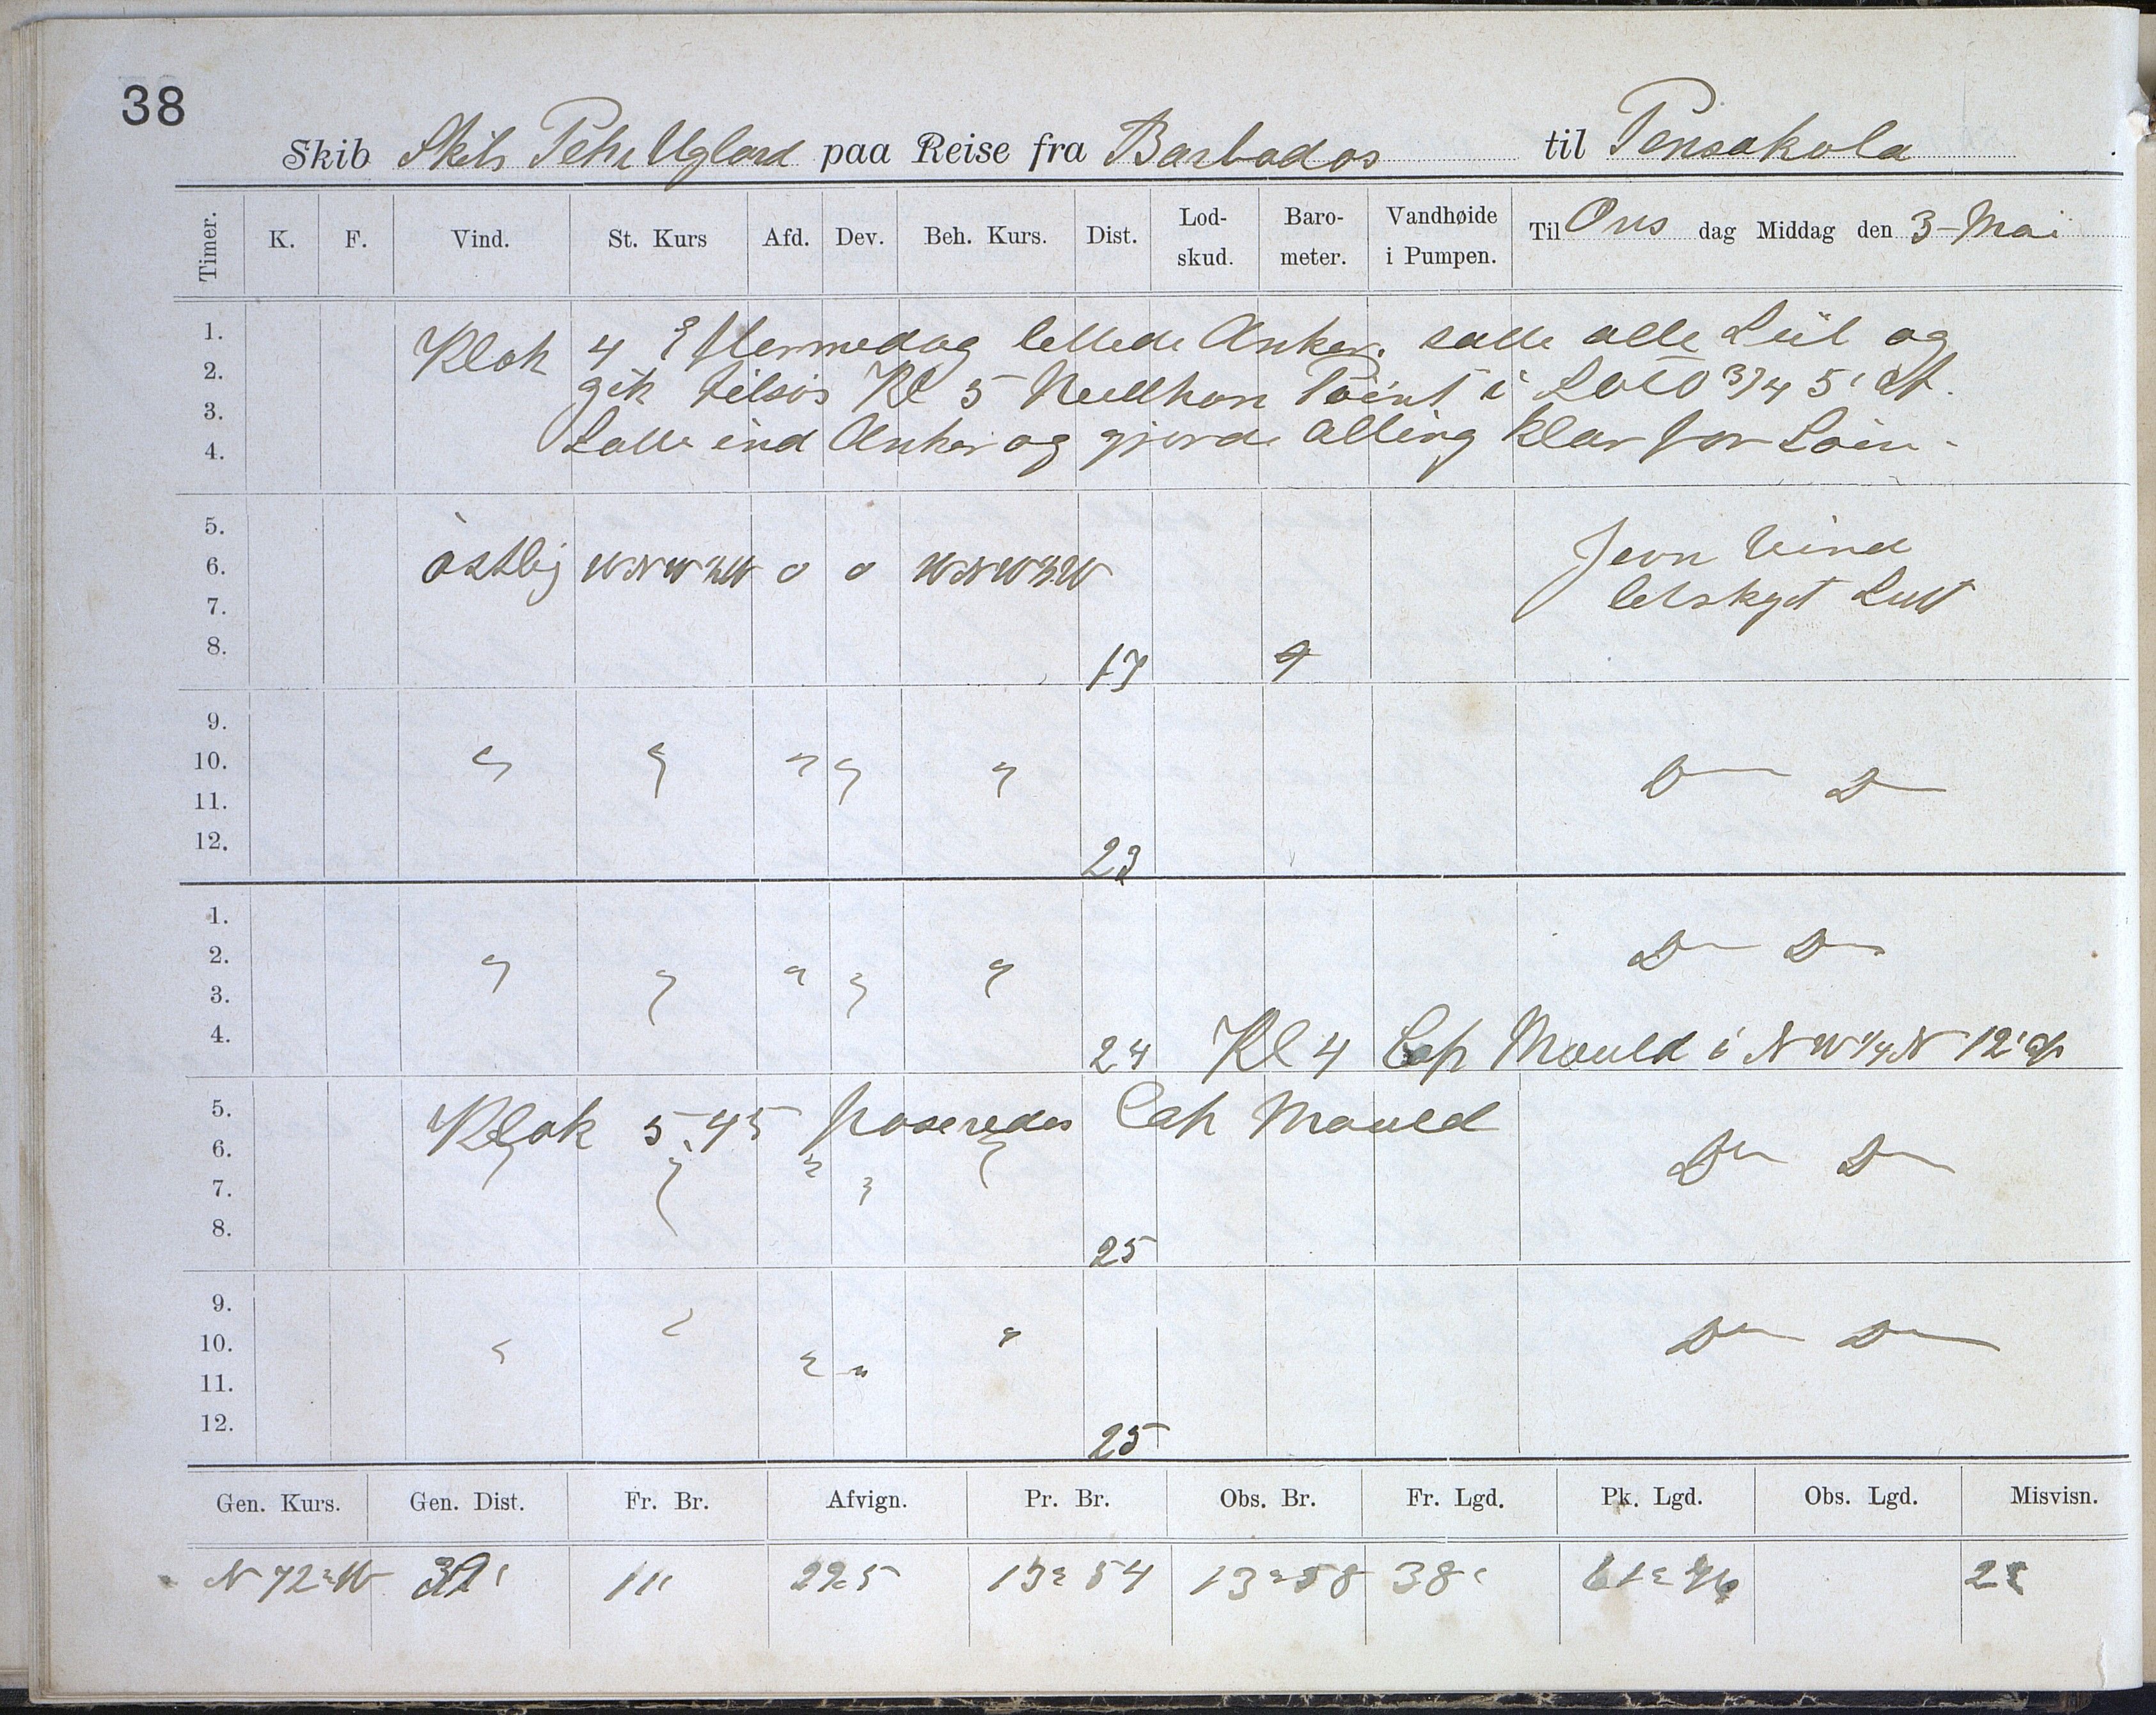 38
Skib Skib Peter Ugland paa Reise fra Barbados til Pensakola
Timer. K. F. Vind. St. Kurs Afd. Dev. Beh. Kurs. Dist. Lod-skud. Baro-meter. Vandhøide i Pumpen. Til Ons dag Middag den 3 - Mai
1.
2.
3.
4.
Klok 4 Eftermedag lettede Anker. satte alle Seil og
gik tilsøs Kl 5 Needham Point i SOtO 3/4 5' Af.
Satte ind Anker og gjorde alting klar for Søen -
5.
6. østlig WNW ½W o o WNW ½W Jevn Vind
7. letskyet Luft
8. 17
9.
10. " " " " " Do Do
11.
12. 23
1.
2. " " " " " Do Do
3.
4. 24 Kl 4 Cap Mould i NW 1/4 N 12' af
5. Klok 5.45 paseredes Cap Mould
6. " " " " " Do Do
7.
8. 25
9.
10. " " " " " Do Do
11.
12. 25
Gen. Kurs. Gen. Dist. Fr. Br. Afvign. Pr. Br. Obs. Br. Fr. Lgd. Pk. Lgd. Obs. Lgd. Misvisn.
N 72° W 11' 13° 54 13° 58 38'